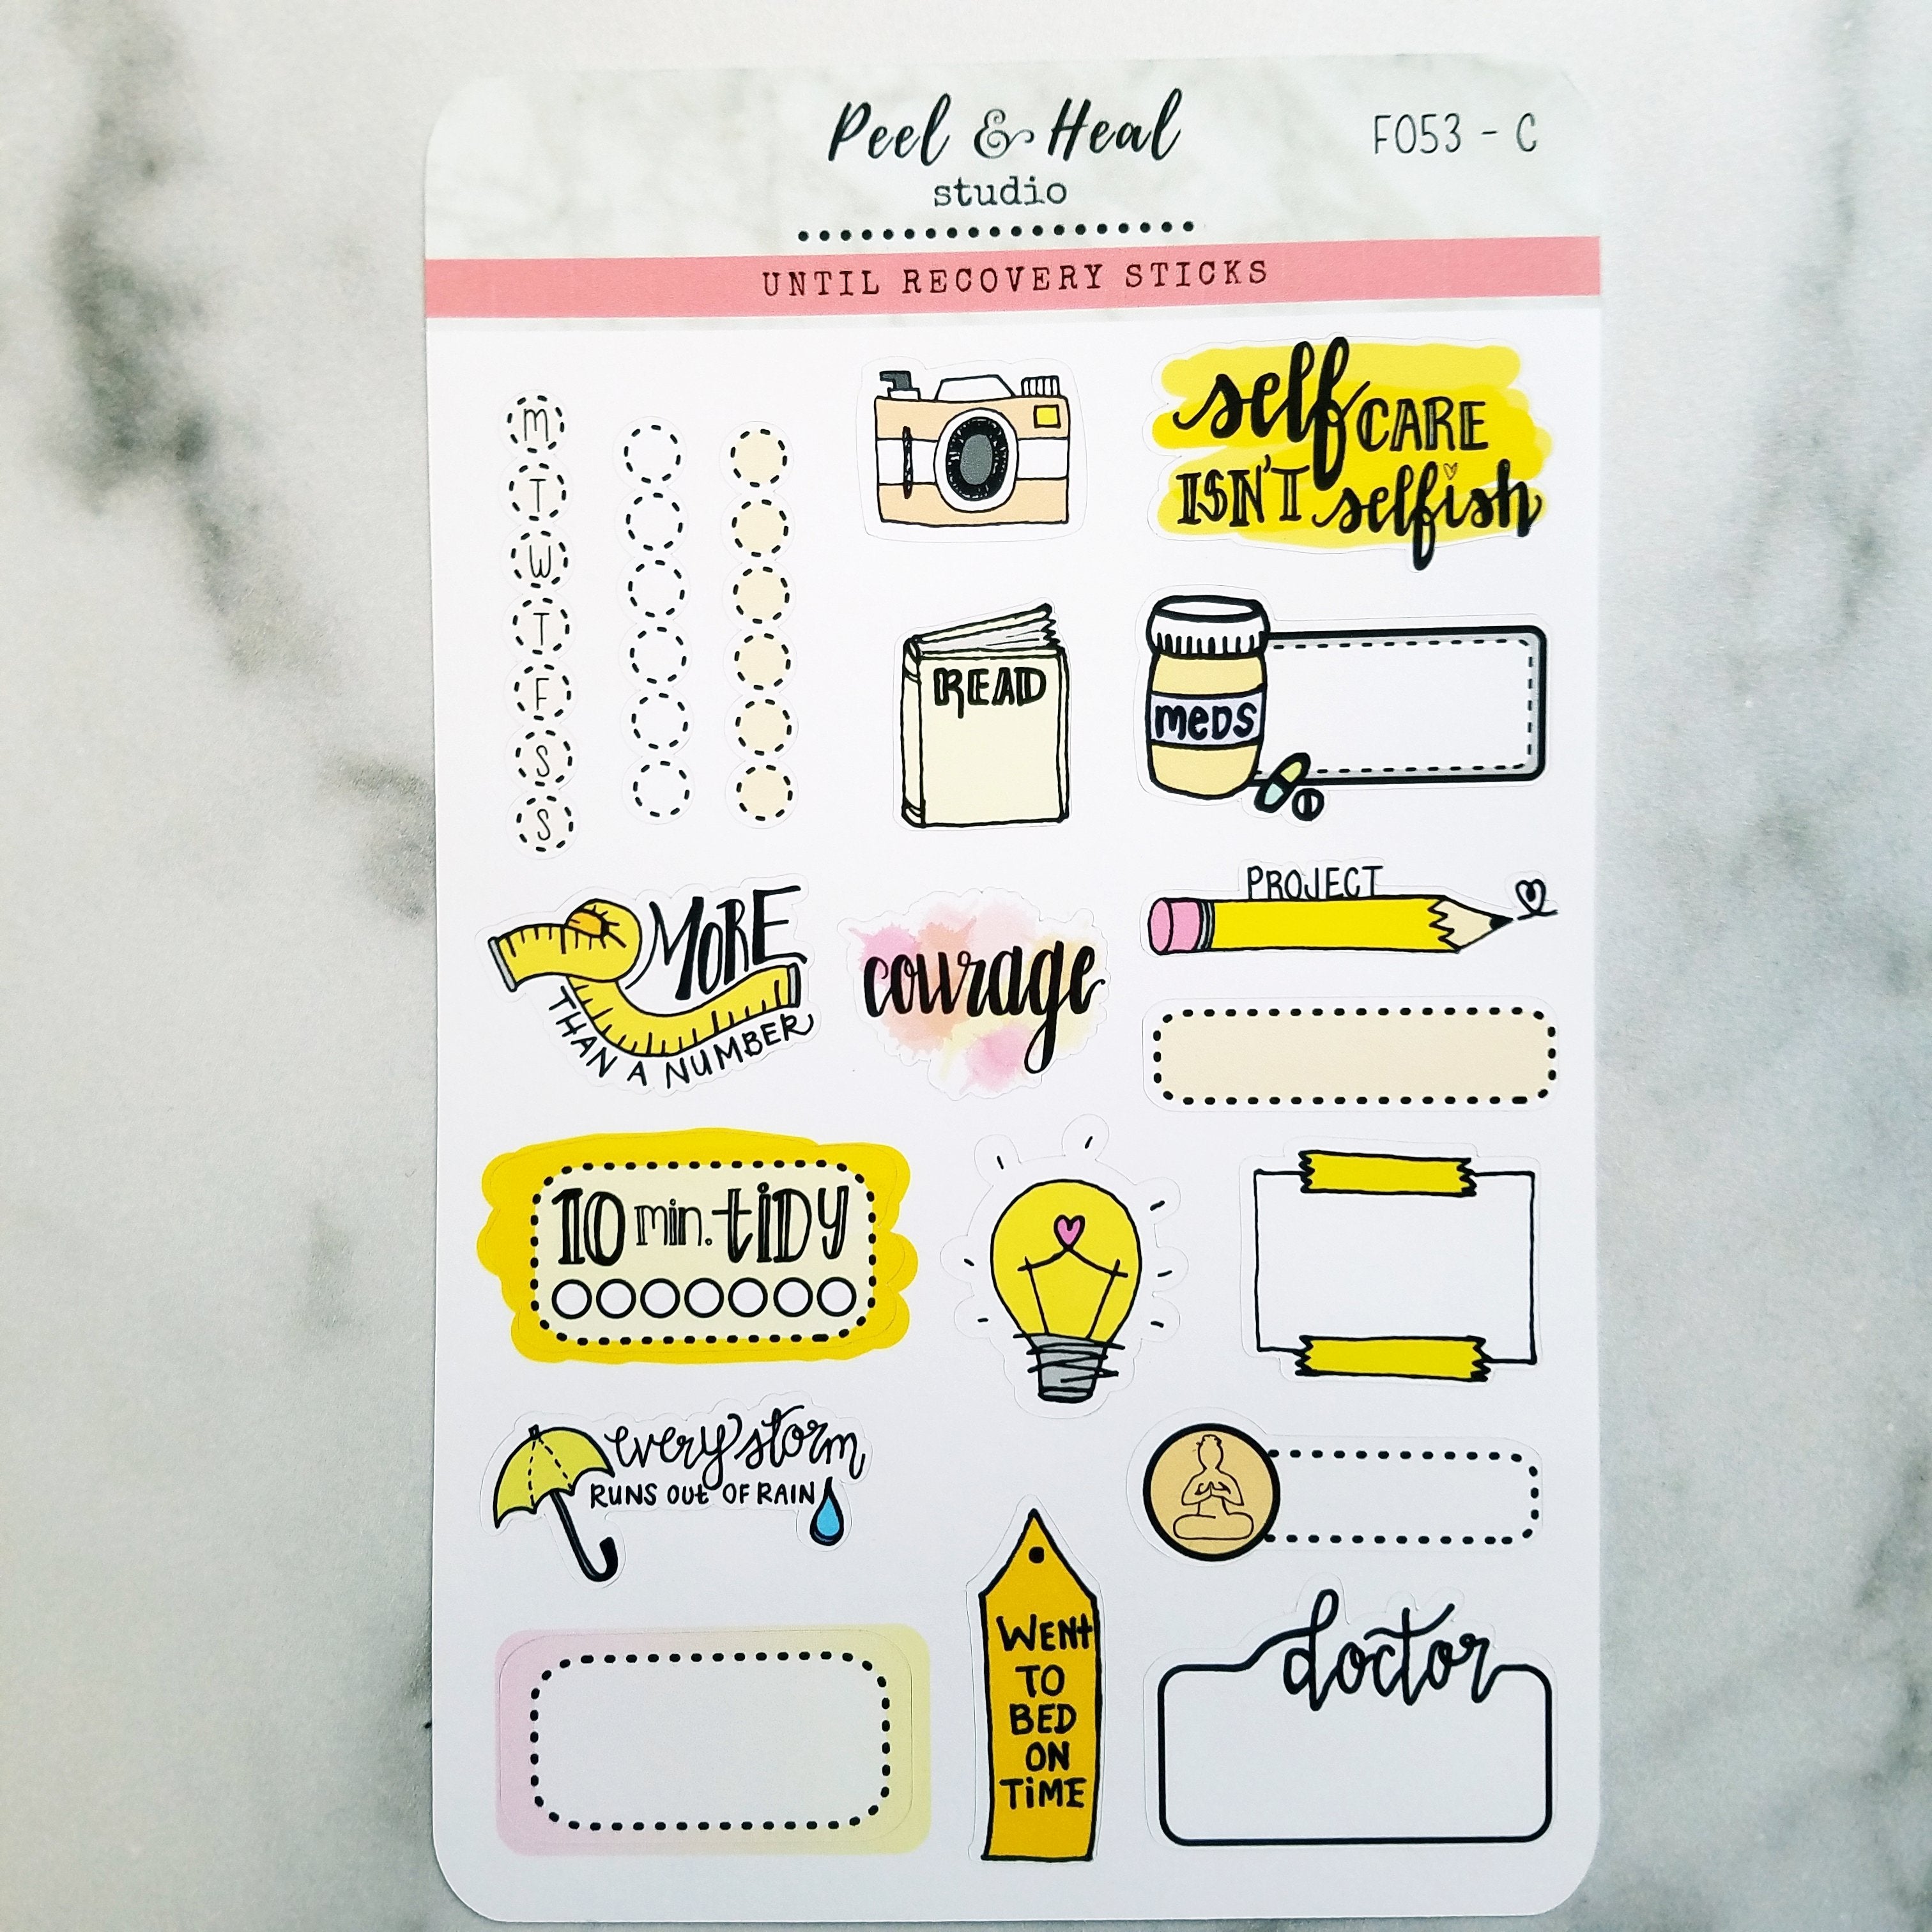 Peel & Heal
studio
F053 - C
UNTIL RECOVERY STICKS
M
T
W
T
F
S
S
self CARE
ISN'T selfish
READ
meDS
MORE
THAN A NUMBER
courage
PROJECT
10 min. tiDy
every storm
RUNS OUt OF RAIN
WENt
TO
BED
ON
TiME
doctor